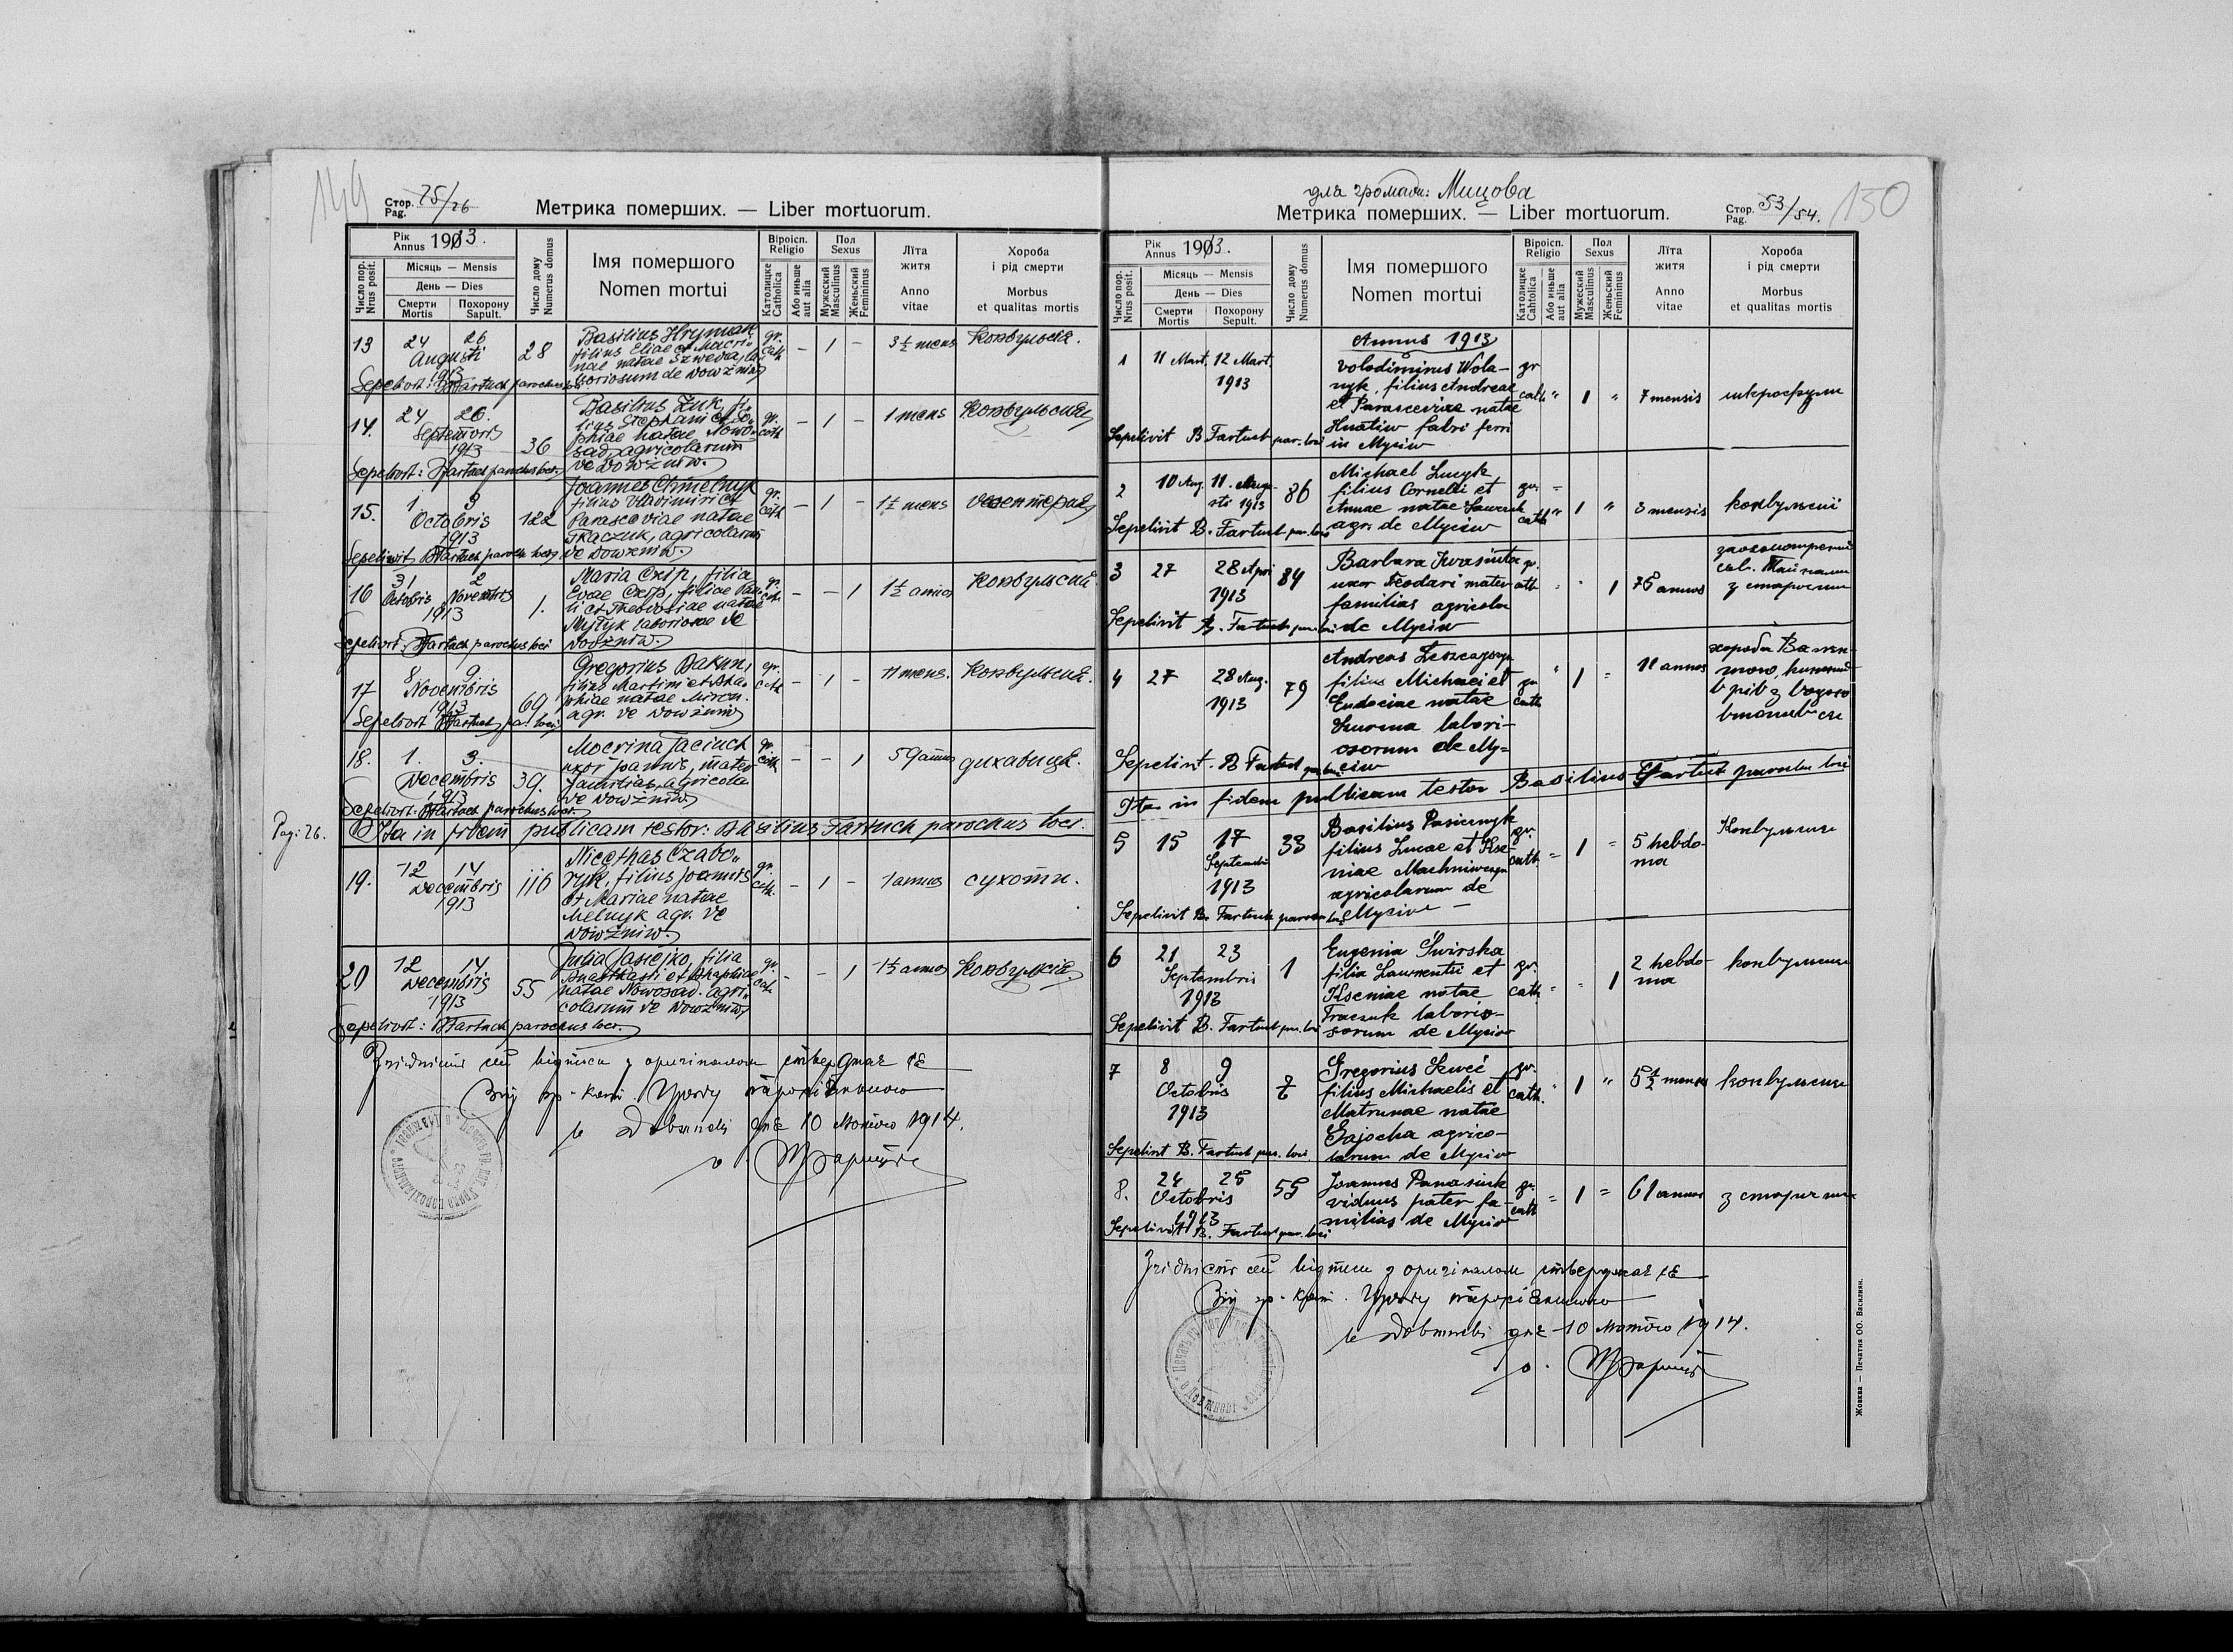 149
Стор. Pag. 25/26
Метрика померших. — Liber mortuorum.
Рік Annus 1913.
Місяць — Mensis
День — Dies
Число пор. Nrus posit.
Смерти Mortis
Похорону Sapult.
Число дому Numerus domus
Імя помершого
Nomen mortui
Віроісп. Religio
Католицке Catholica
Або иньше aut alia
Пол Sexus
Мужеский Masculinus
Женьский Femininus
Лїта житя
Anno vitae
Хороба і рід смерти
Morbus et qualitas mortis
13 24 26 Augusti 1913 28
Basilius Hrymak
filius Eliae et Macri„
nae natae Szweda, la„
boriosum de Dowżniw
gr. cath – 1 – 3½ mens Конвульсиї.
Sepelivit: BFartuch parochus loci
14. 24 26. Septembris 1913 36
Basilius Żuk, fi„
lius Stephani et So„
phiae natae Nowo„
sad, agricolarum
de Dowżniw.
gr. cath – 1 – 1 mens Конвульсиї
Sepelivit: BFartuch parochus loci.
15. 1 3 Octobris 1913 122
Joannes Chmelnyk
filius Vladimiri et
Parasceviae natae
Tkaczuk, agricolarum
de Dowżniw.
gr. cath – 1 – 1½ mens
Sepelivit BFartuch paroch. loci
16 31 Octobris 2 Novembris 1913 1.
Maria Czip, filia
Evae Czip, filiae Pau„
li et Theodosiae natae
laboriosae de
Dowżniw.
gr. cath. – – 1 1½ annos Конвульсиї
Sepelivit: BFartuch parochus loci
17 8 9 Novembris 1913 69
Gregorius Bakun,
filius Martini et
natae
agr. de Dowżniw
gr. cath – 1 – 11 mens. Конвульсиї.
Sepelivit BFartuch par. loci
18. 1. 3. Decembris 1913 39.
Mocrina Jaciuch
uxor Joannis, mater
familias, agricola
de Dowżniw
gr. cath – – 1 59 annos дихавиця.
Sepelivit: BFartuch parochus loci.
Pag: 26.
Ita in fidem publicam testor: Basilius Fartuch parochus loci.
19. 12 14 Decembris 1913 116
Nicethas Czabo„
ryk, filius Joannis
et Mariae natae
Melnyk agr. de
Dowżniw.
gr. cath. – 1 – 1 annos сухоти.
20 12 14 Decembris 1913 55
Julia Jasiejko, filia
Anastasii et Agaphiae
natae Nowosad. agri„
colarum de Dowżniw
gr. cath – – 1 1½ annos Конвульсиї.
Sepelivit: BFartuch parochus loci.
Згідність сеї відписи з оригіналом стверджає ся
Від гр.-кат. Уряду парохіяльного
в Довжневі дня 10 лютого 1914.
о. ВФартух
для громади: Мицова
150
Метрика померших. — Liber mortuorum.
Стор. Pag. 53/54.
Рік Annus 1913.
Місяць — Mensis
День — Dies
Число пор. Nrus posit.
Смерти Mortis
Похорону Sepult.
Число дому Numerus domus
Імя помершого
Nomen mortui
Віроісп. Religio
Католицке Cahtolica
Або иньше aut alia
Пол Sexus
Мужеский Masculinus
Женьский Femininus
Лїта житя
Anno vitae
Хороба і рід смерти
Morbus et qualitas mortis
Annus 1913
1 11 Mart. 12 Mart. 1913
Volodimirus Wola-
nyk, filius Andreae
et Parasceviae natae
Hnatiw fabri ferri
in Myciw
gr cath " 1 " 7 mensis
Sepelivit B Fartuch par. loci
2 10 Aug. 11. Augu-
sti 1913 86
Michael Lucyk
filius Cornelli et
Annae natae Sawczuk
agr. de Myciw
gr. cath " 1 " 3 mensis конвульсиї
Sepelivit B. Fartuch par. loci
3 27 28 Apr 1913 84
Barbara Kwasiuta
uxor Teodari mater
familias agricola
de Myciw
gr. cath " " 1 75 annos
заосмотрений
св. Тайнами
з старости
Sepelivit B. Fartuch par. loci
4 27 28 Aug. 1913 79
Andreas
filius Michaei et
Eudociae natae
labori-
osorum de My-
ciw
gr cath " 1 " 11 annos
хороба
в рів з водою
втопив ся
Sepelivit. B. Fartuch par. loci
Ita in fidem publicam testor Basilius Fartuch parochus loci
5 15 17 Septembris 1913 33
Basilius Pasicznyk
filius Lucae et Kse-
niae
agricolarum de
Myciw –
gr. cath. " 1 " 5 hebdo-
ma Конвульсиї
Sepelivit B. Fartuch parochus loci
6 21 23 Septembris 1913 1
Eugenia Świrska
filia Laurentii et
Kseniae natae
Traczuk laborio-
sorum de Myciw
gr. cath. " " 1 2 hebdo-
ma конвульсиї
Sepelivit B. Fartuch par. loci
7 8 9 Octobris 1913 7
Gregorius Szweć
filius Michaelis et
Matrunae natae
Gajocha agrico-
larum de Myciw
gr. cath. " 1 " 5½ mens конвульсиї
Sepelivit B. Fartuch par. loci
8. 24 25 Octobris 1913 55
Joannes Panasiuk
viduus pater fa-
milias de Myciw
gr. cath " 1 " 61 annos з старости
Sepelivit B. Fartuch par. loci
Згідність сеї відписи з оригіналом стверджає ся
Від гр.-кат. Уряду парохіяльного
в Довжневі дня 10 лютого 1914.
о. ВФартух
Жовква — Печатня ОО. Василиян.